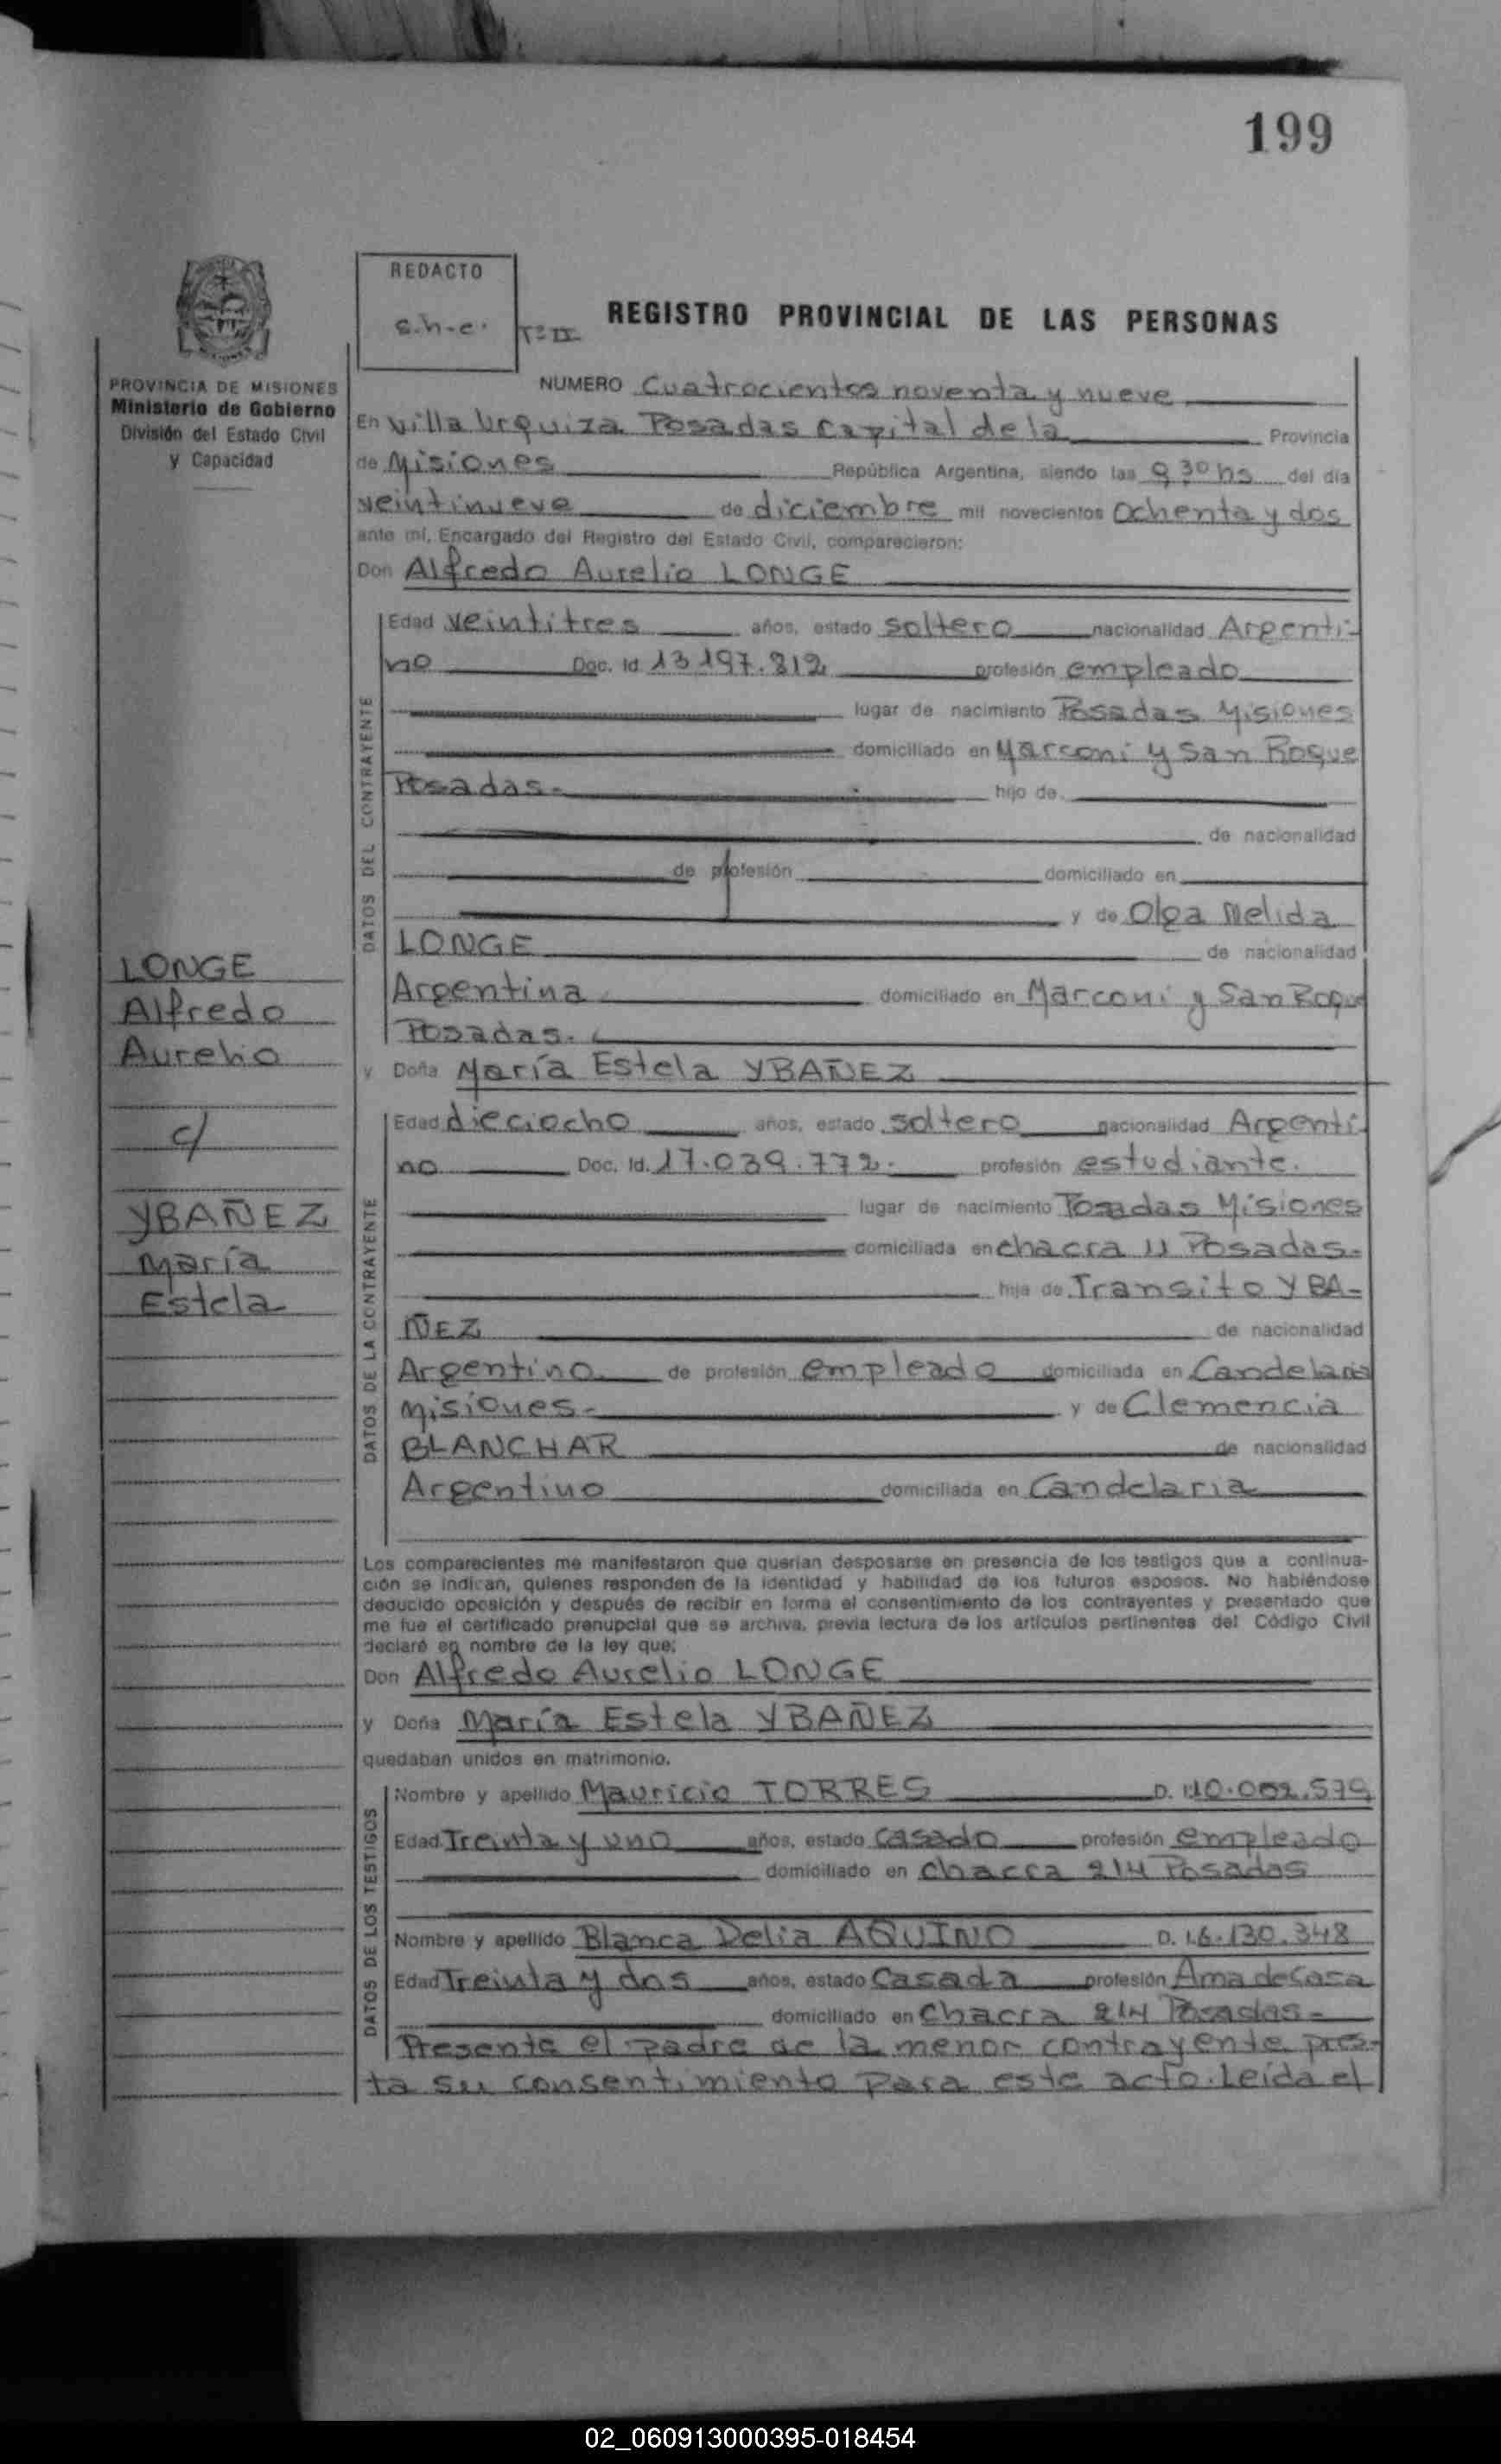 199
REDACTO
c.h-e.
Tº II
REGISTRO PROVINCIAL DE LAS PERSONAS
PROVINCIA DE MISIONES
Ministerio de Gobierno
División del Estado Civil
y Capacidad
NUMERO Cuatrocientos noventa y nueve
En Villa Urquiza Posadas Capital de la Provincia
de Misiones República Argentina, siendo las 9,30 hs del día
veintinueve de diciembre mil novecientos ochenta y dos
ante mí, Encargado del Registro del Estado Civil, comparecieron:
Don Alfredo Aurelio LONGE
DATOS DEL CONTRAYENTE
Edad veintitres años, estado soltero nacionalidad Argenti-
no Doc. Id 13 197.812 profesión empleado
lugar de nacimiento Posadas Misiones
domiciliado en Marconi y San Roque
Posadas.- hijo de
de nacionalidad
de profesión domiciliado en
y de Olga Nelida
LONGE de nacionalidad
Argentina domiciliado en Marconi y San Roque
Posadas.
LONGE
Alfredo
Aurelio
c/
YBAÑEZ
María
Estela
y Doña María Estela YBAÑEZ
DATOS DE LA CONTRAYENTE
Edad dieciocho años, estado soltero nacionalidad Argenti-
no Doc. Id. 17.039.772.- profesión estudiante.
lugar de nacimiento Posadas Misiones
domiciliada en chacra 11 Posadas.-
hija de Transito YBA-
ÑEZ de nacionalidad
Argentino de profesión empleado domiciliada en Candelaria
Misiones.- y de Clemencia
BLANCHAR de nacionalidad
Argentino domiciliada en Candelaria
Los comparecientes me manifestaron que querían desposarse en presencia de los testigos que a continua-
ción se indican, quienes responden de la identidad y habilidad de los futuros esposos. No habiéndose
deducido oposición y después de recibir en forma el consentimiento de los contrayentes y presentado que
me fue el certificado prenupcial que se archiva, previa lectura de los artículos pertinentes del Código Civil
declaré en nombre de la ley que:
Don Alfredo Aurelio LONGE
y Doña María Estela YBAÑEZ
quedaban unidos en matrimonio.
DATOS DE LOS TESTIGOS
Nombre y apellido Mauricio TORRES D. 10.002.579
Edad Treinta y uno años, estado casado profesión empleado
domiciliado en chacra 214 Posadas
Nombre y apellido Blanca Delia AQUINO D. 16.130.348
Edad Treinta y dos años, estado Casada profesión Ama de Casa
domiciliado en Chacra 214 Posadas.-
Presente el padre de la menor contrayente pres-
ta su consentimiento para este acto. Leída el
02_060913000395-018454